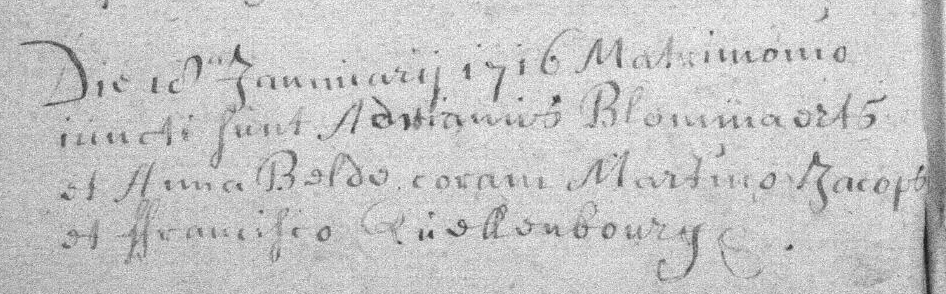 Die 18ª Jannuarij 1716 Matrimonio
iuncti sunt Adrianus Blommaerts
et Anna Belde coram Martino Jacops
et ffrancisco Quellenbourg